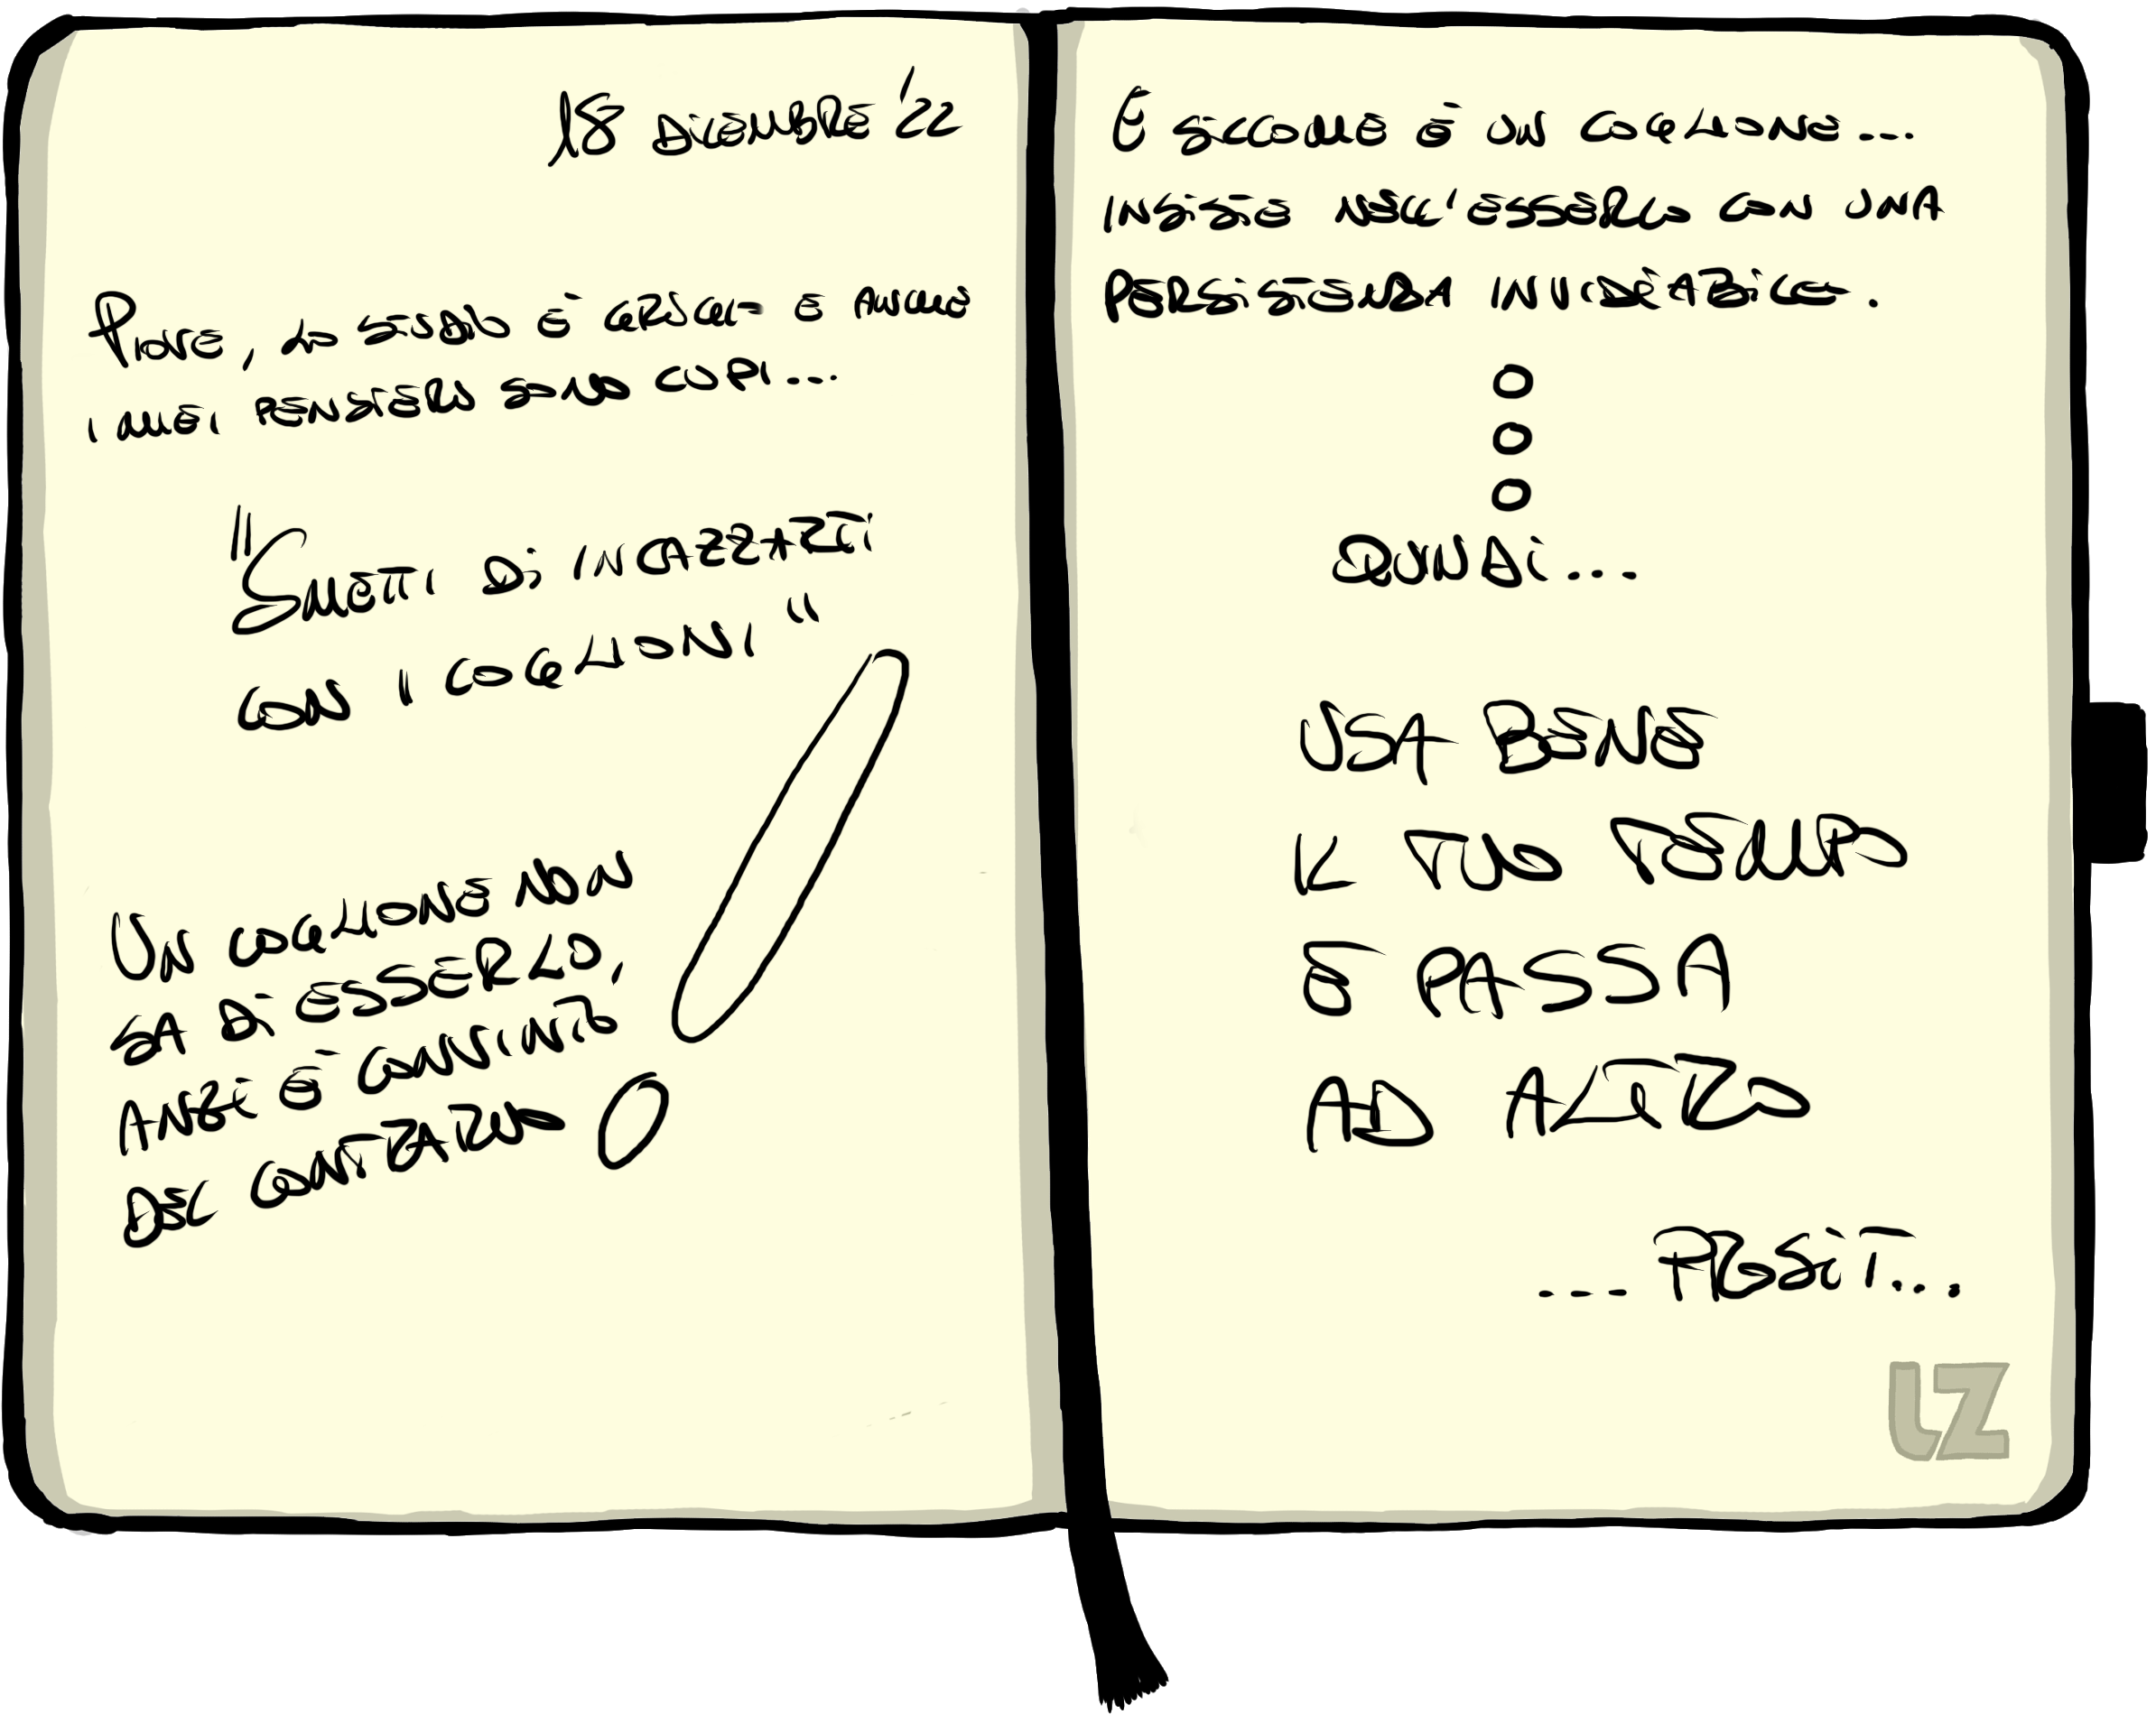 18 DICEMBRE '22
PIOVE, LO STUDIO È CALDO E ANCHE
I MIEI PENSIERI SONO CUPI...
"SMETTI DI INCAZZARTI
CON I COGLIONI"
UN COGLIONE NON
SA DI ESSERLO,
ANZI È CONVINTO
DEL CONTRARIO
E SICCOME È UN COGLIONE...
INSISTE NELL'ESSERLO CON UNA
PERSISTENZA INVIDIABILE.
QUINDI...
USA BENE
IL TUO TEMPO
E PASSA
AD ALTRO
... PROSIT...
LZ